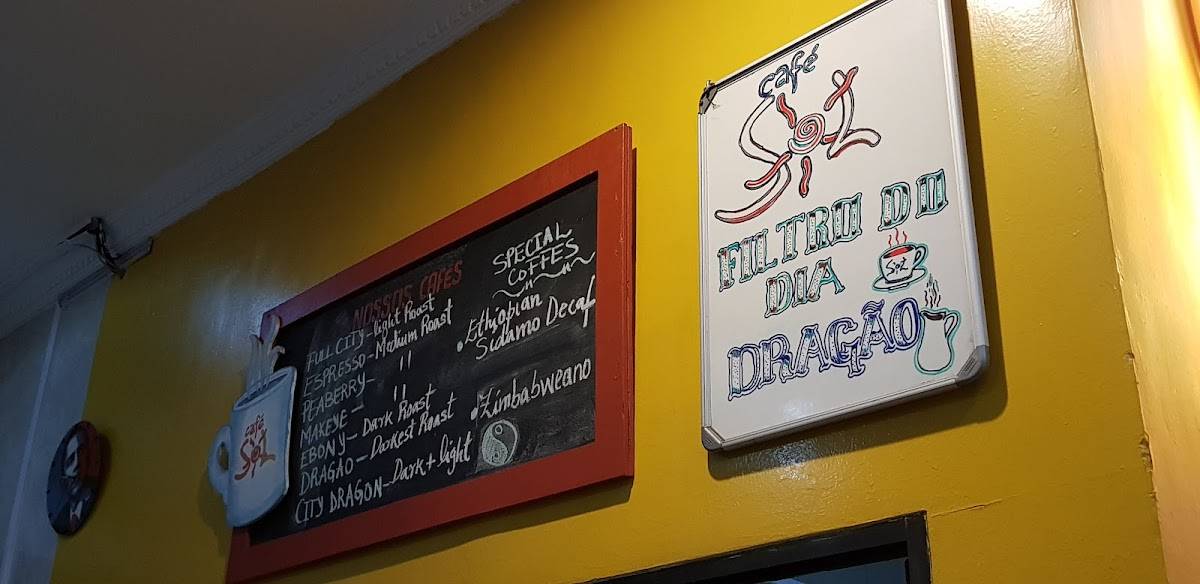 NOSSOS CAFÉS
FULL CITY - light Roast
ESPRESSO - Medium Roast
PEABERRY - "
MAKEYE - "
EBONY - Dark Roast
DRAGAO - Darkest Roast
CITY DRAGON - Dark + light
SPECIAL
COFFES
• Ethiopian
Sidamo Decaf
• Zimbabweano
café
SOL
café
SOL
FILTRO DO
DIA
SOL
DRAGÃO